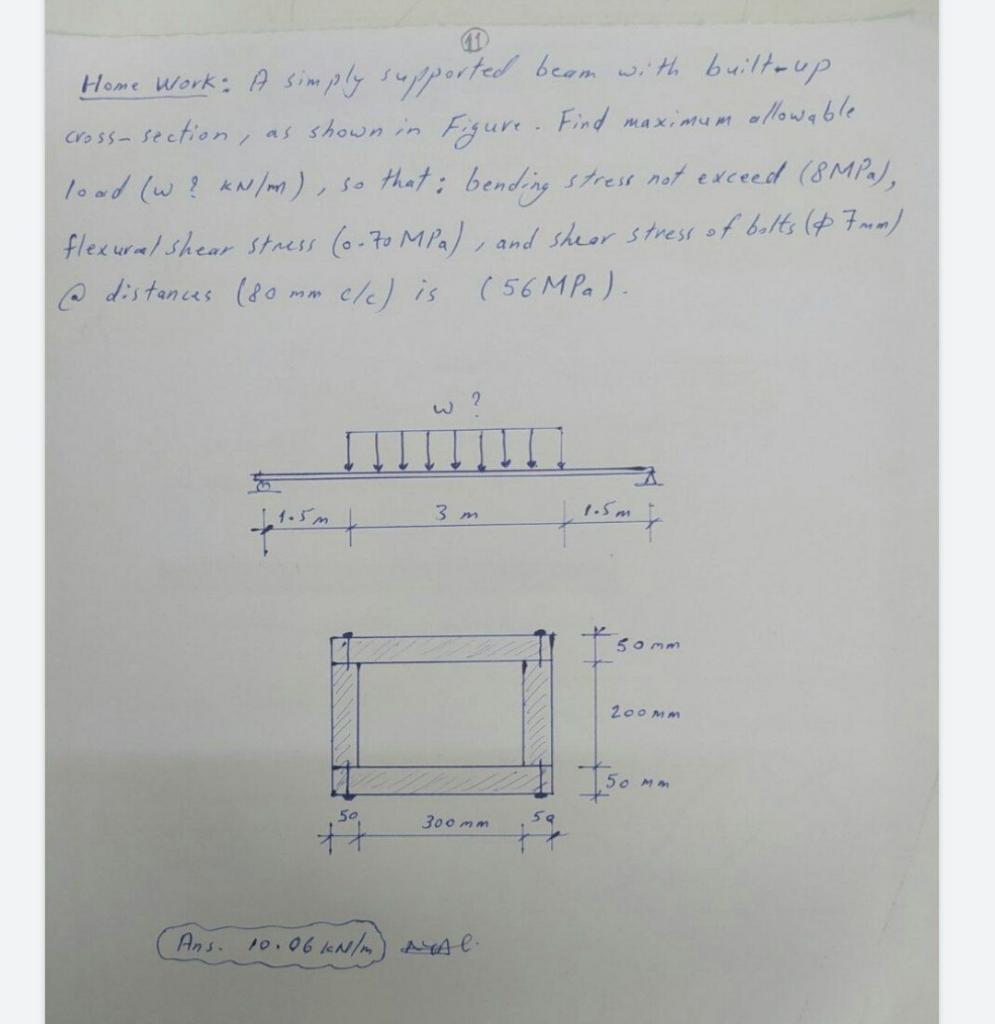 11
Home Work: A simply supported beam with built-up
cross-section, as shown in Figure. Find maximum allowable
load (w ? kN/m), so that; bending stress not exceed (8MPa),
flexural shear stress (0.70 MPa), and shear stress of bolts (ϕ 7mm)
@ distances (80 mm c/c) is (56MPa).
w ?
1.5m 3 m 1.5m
50 mm
200 mm
50 mm
50 300 mm 50
Ans. 10.06 kN/m